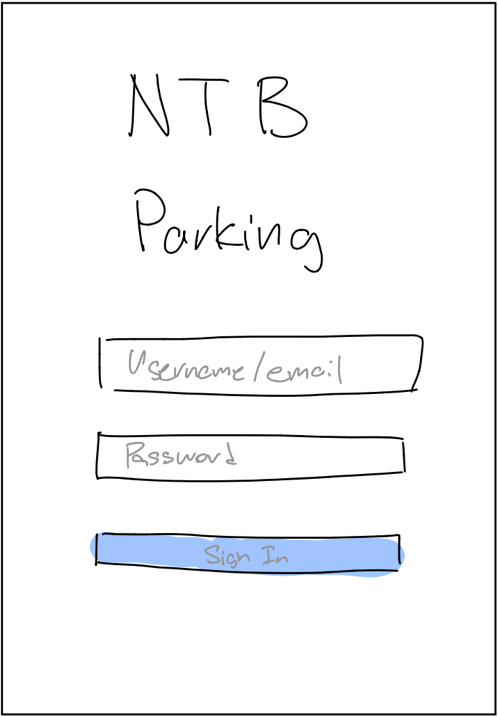 NTB
Parking
Username/email
Password
Sign In